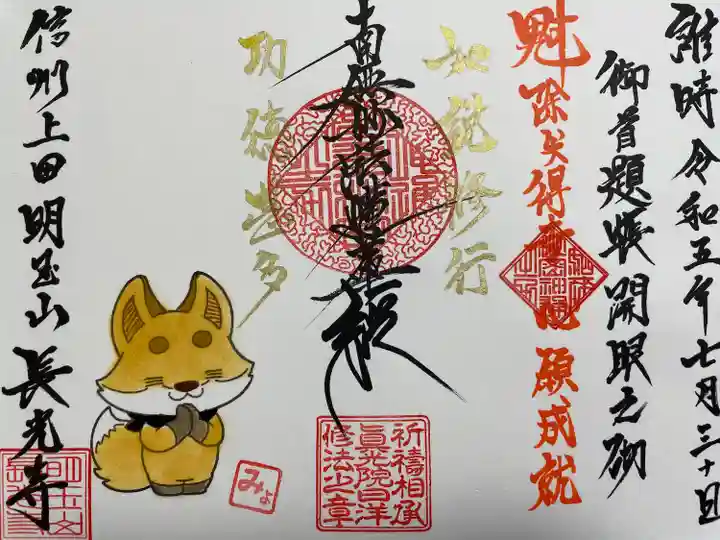 維時令和五年七月三十日
御首題帳開眼之砌
魁除失得 心願成就
如説修行
南無妙法蓮華経
功徳甚多
信州上田明玉山長光寺
祈禱相承
眞英院日洋
修法之章
みょ
明玉山
長光寺